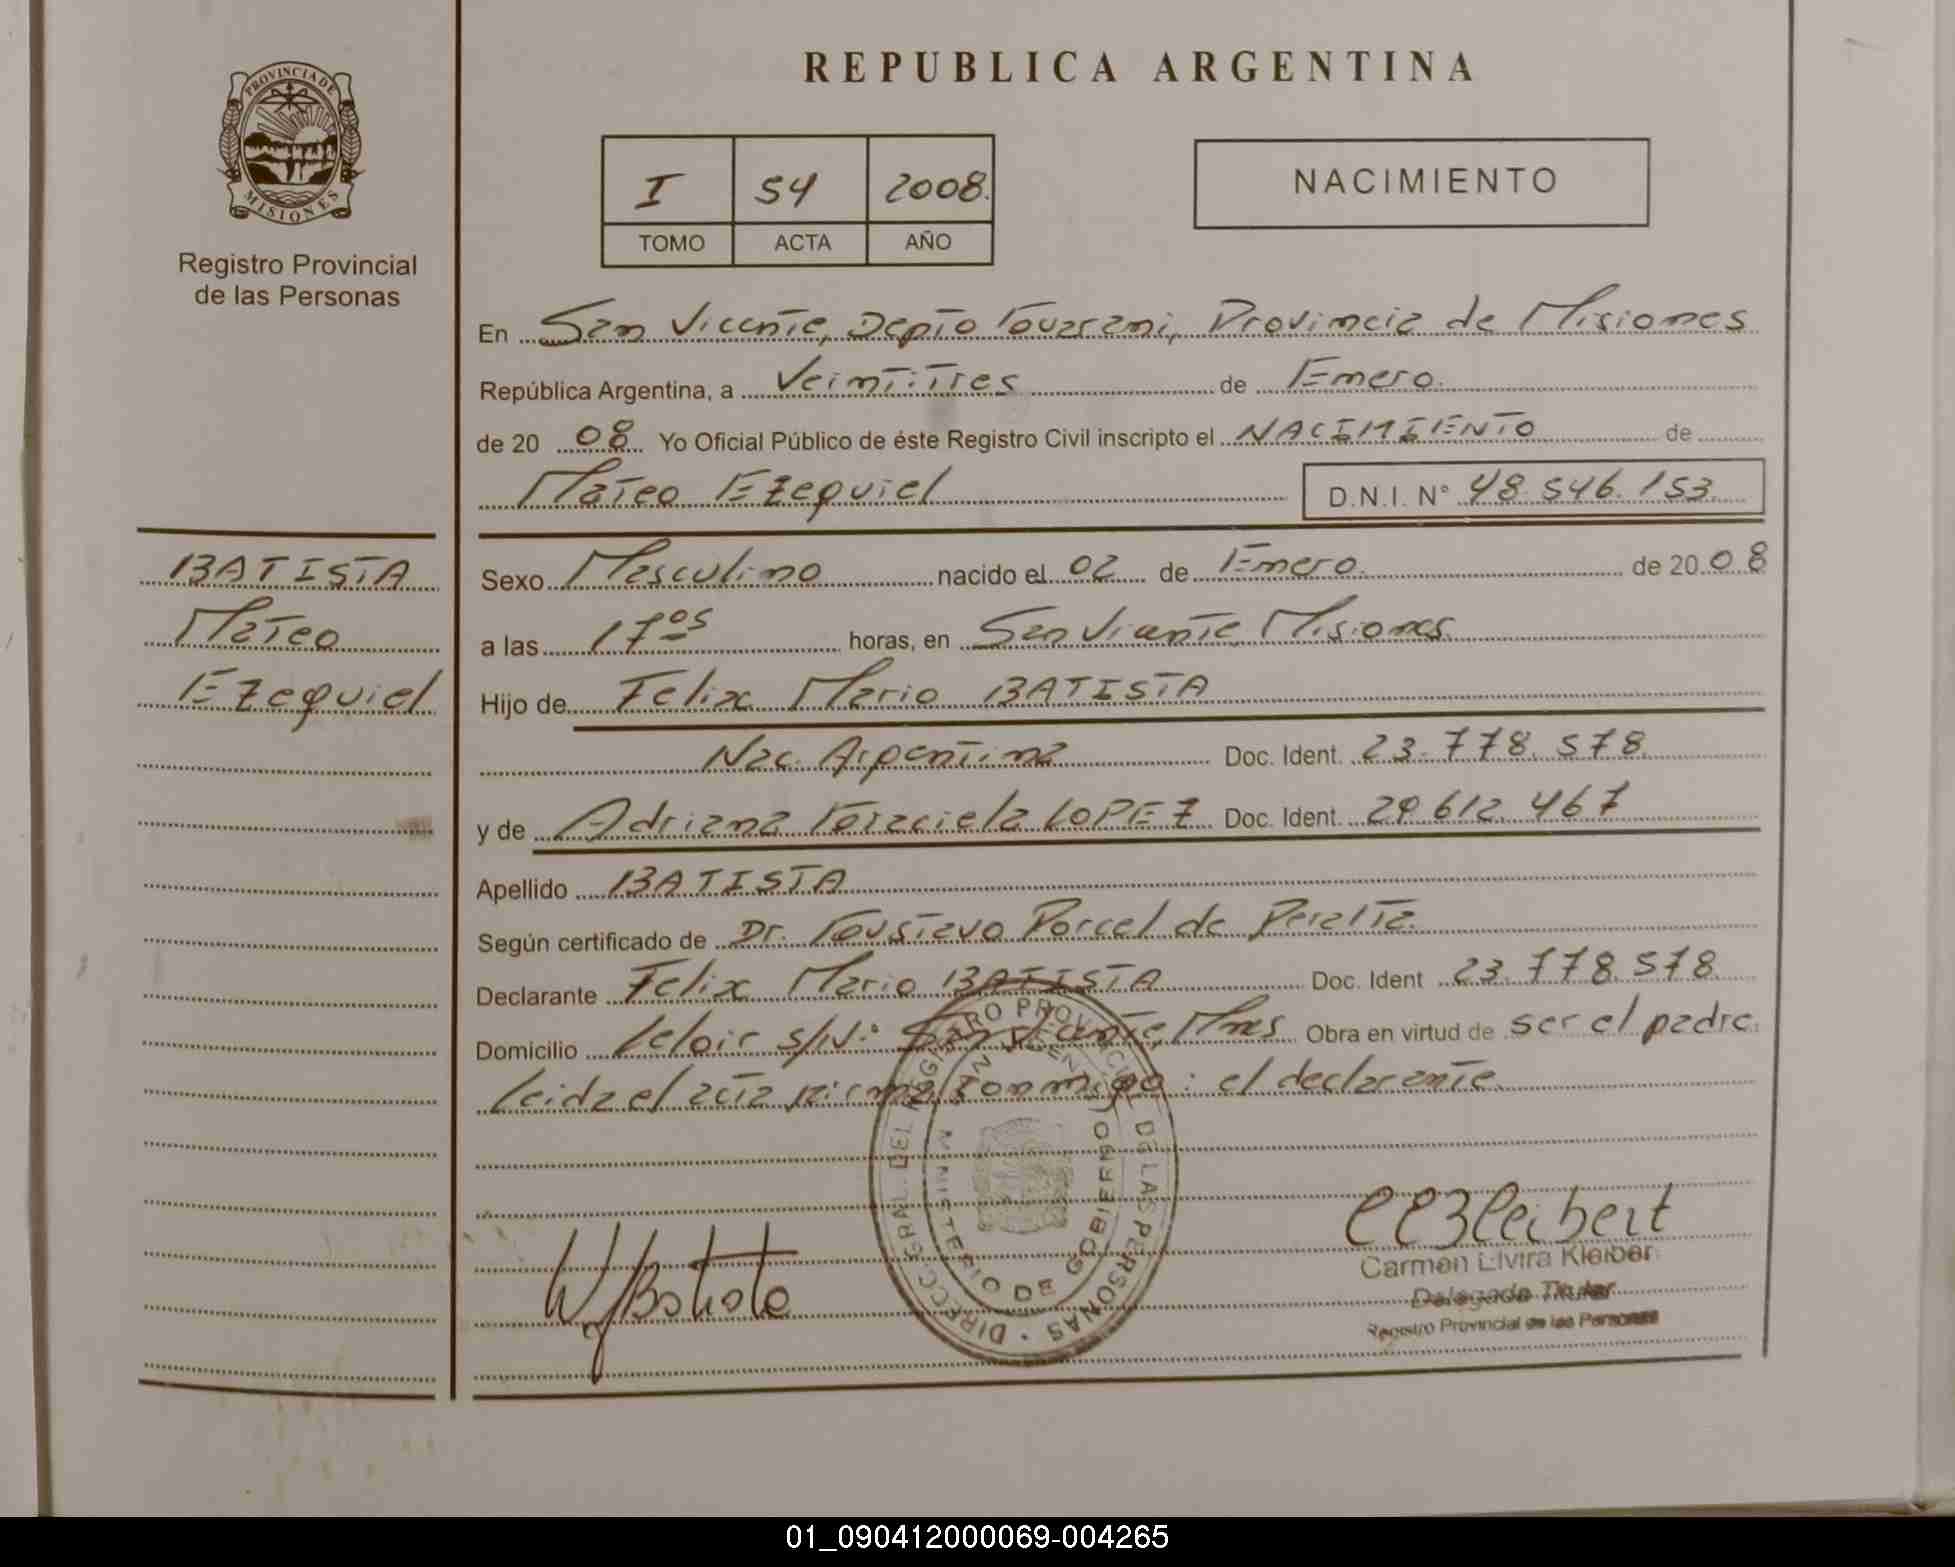 REPUBLICA ARGENTINA
PROVINCIA DE
MISIONES
Registro Provincial
de las Personas
I 54 2008.
TOMO ACTA AÑO
NACIMIENTO
En San Vicente, Depto Guarani, Provincia de Misiones
República Argentina, a Veintitres de Enero.
de 20 08 Yo Oficial Público de éste Registro Civil inscripto el NACIMIENTO de
Mateo Ezequiel D.N.I. N° 48.546.153
BATISTA
Mateo
Ezequiel
Sexo Masculino nacido el 02 de Enero. de 20 08
a las 17 05 horas, en San Vicente, Misiones.
Hijo de Felix Mario BATISTA
Nac. Argentina Doc. Ident. 23.778.578.
y de Adriana Graciela LOPEZ Doc. Ident. 29.612.467
Apellido BATISTA
Según certificado de Dr. Gustavo Porcel de Peralta.
Declarante Felix Mario BATISTA Doc. Ident 23.778.578
Domicilio Leloir s/N: San Vicente, Mnes Obra en virtud de ser el padre.
Leida el acta firma conmigo: el declarante
DIRECC. GRAL. DEL REGISTRO PROVINCIAL DE LAS PERSONAS
MINISTERIO DE GOBIERNO
SAN VICENTE
Batista
CEKleibert
Carmen Elvira Kleiber
Delegada Titular
Registro Provincial de las Personas
01_090412000069-004265